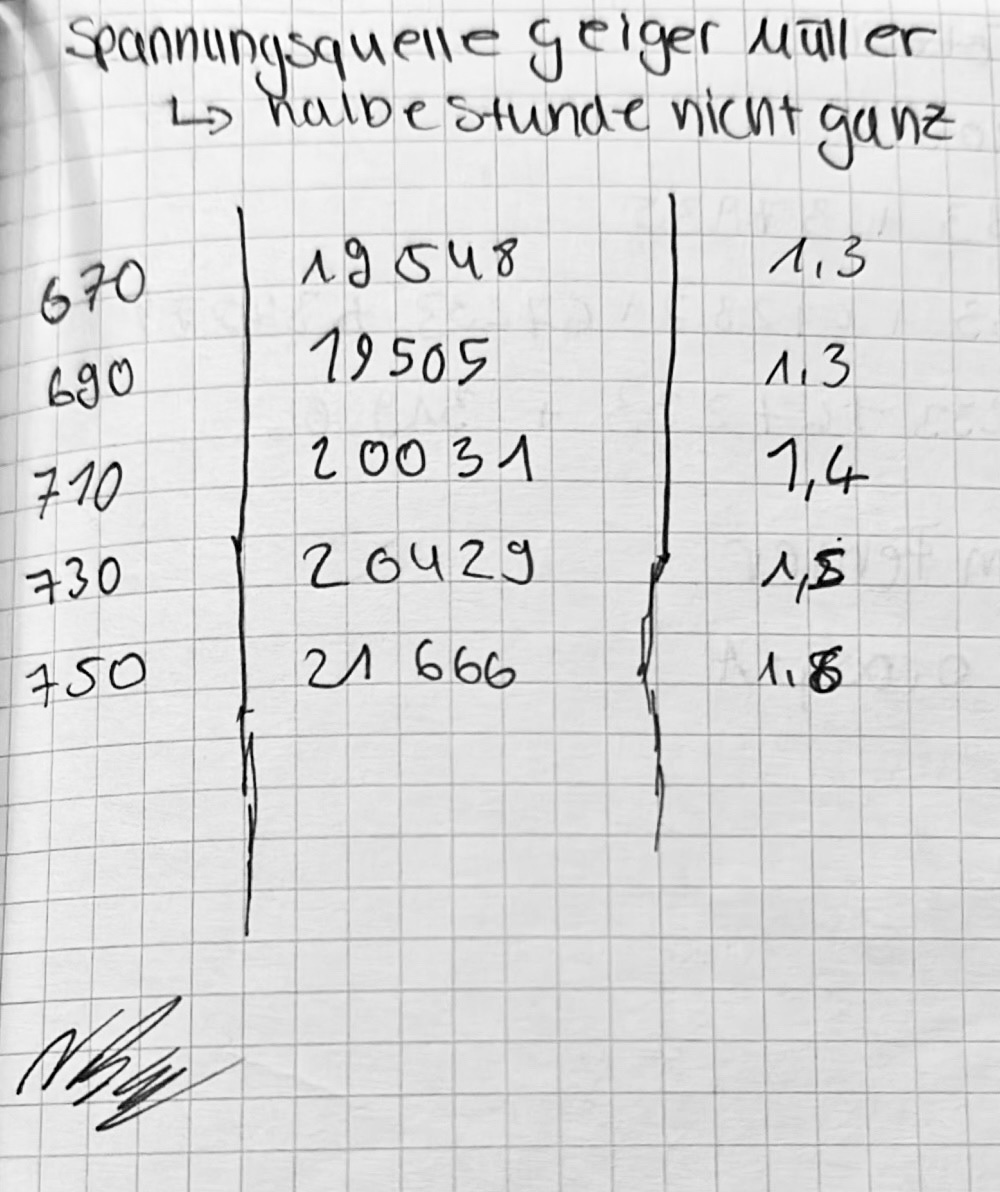 Spannungsquelle Geiger Müller
↳ halbe Stunde nicht ganz
670 | 19 548 | 1,3
690 | 19505 | 1,3
710 | 20031 | 1,4
730 | 20429 | 1,5
750 | 21 666 | 1.8